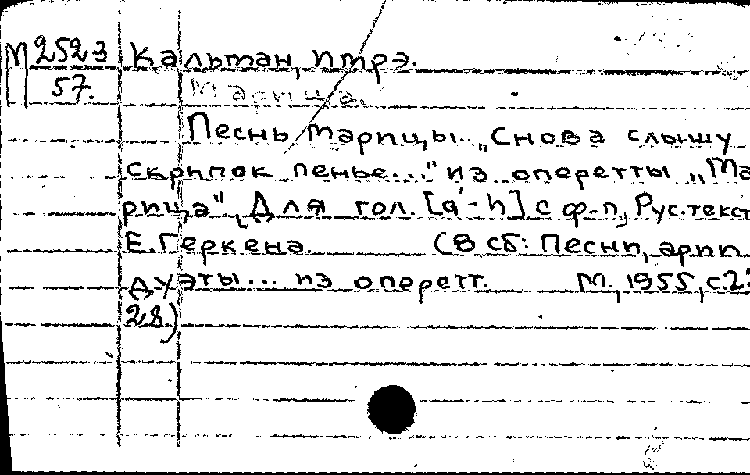 М 2523 Кальман, Имрэ.
57. Марица.
Песнь Марицы „Снова слышу
скрипок пенье..." из оперетты „Ма
рица". Для гол. [a'-h] с ф-п, Рус. текст
Е. Геркена. (В сб: Песни, арии
дуэты... из оперетт. М., 1955, с. 2
28.)